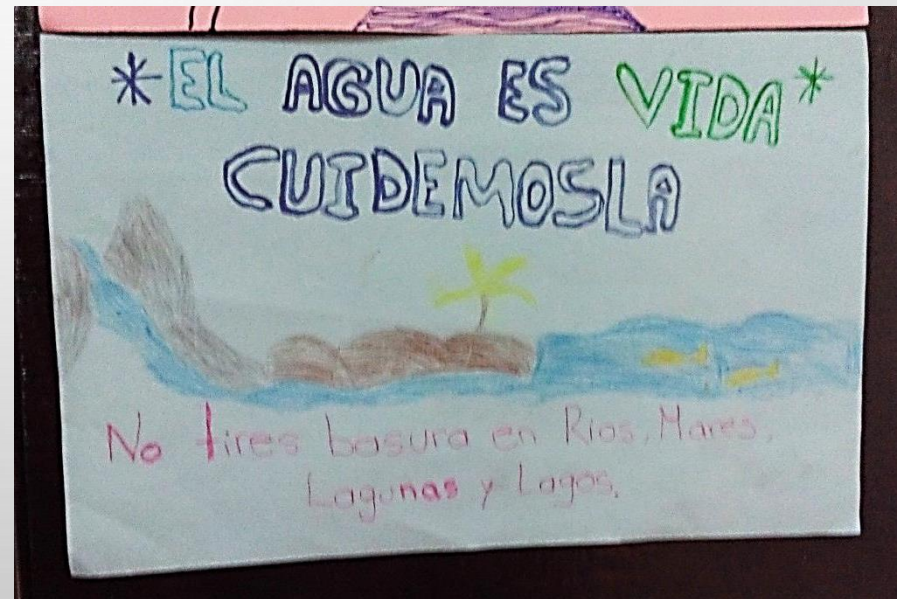 *EL AGUA ES VIDA*
CUIDEMOSLA
No tires basura en Rios, Mares,
Lagunas y Lagos.